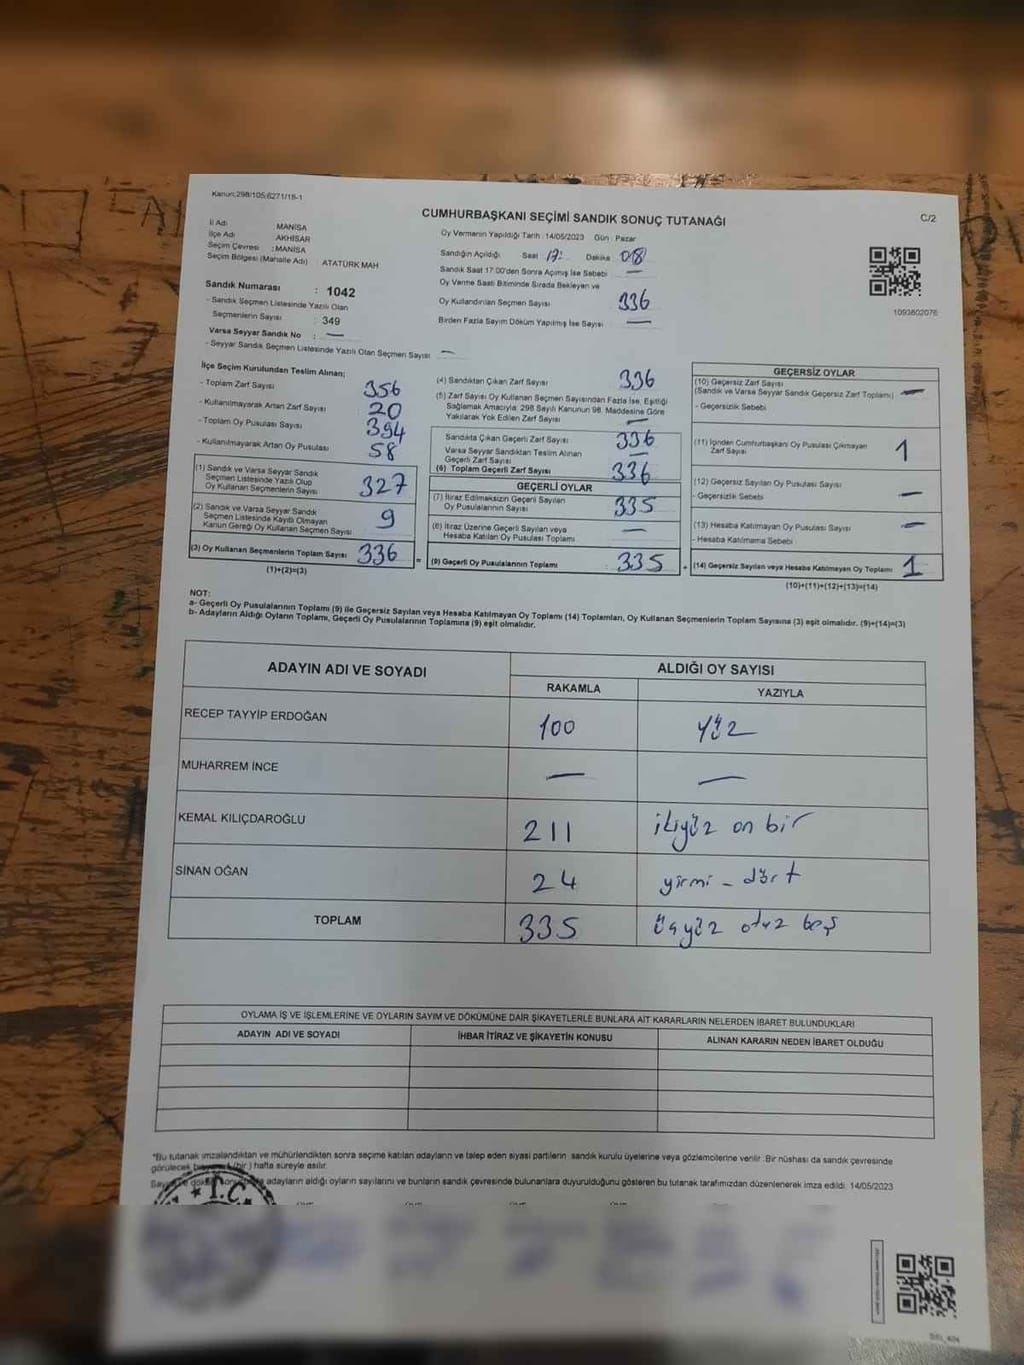 Kanun:298/105;6271/18-1
CUMHURBAŞKANI SEÇİMİ SANDIK SONUÇ TUTANAĞI
C/2
İl Adı : MANİSA
İlçe Adı : AKHİSAR
Seçim Çevresi : MANİSA
Seçim Bölgesi (Mahalle Adı) : ATATÜRK MAH
Sandık Numarası : 1042
- Sandık Seçmen Listesinde Yazılı Olan
Seçmenlerin Sayısı : 349
Varsa Seyyar Sandık No : —
- Seyyar Sandık Seçmen Listesinde Yazılı Olan Seçmen Sayısı —
Oy Vermenin Yapıldığı Tarih : 14/05/2023 Gün : Pazar
Sandığın Açıldığı Saat 17: Dakika 08
Sandık Saat 17.00'den Sonra Açımış İse Sebebi —
Oy Verme Saati Bitiminde Sırada Bekleyen ve
Oy Kullandırılan Seçmen Sayısı 336
Birden Fazla Sayım Döküm Yapılmış İse Sayısı —
1093802076
İlçe Seçim Kurulundan Teslim Alınan;
- Toplam Zarf Sayısı 356
- Kullanılmayarak Artan Zarf Sayısı 20
- Toplam Oy Pusulası Sayısı 394
- Kullanılmayarak Artan Oy Pusulası 58
(1) Sandık ve Varsa Seyyar Sandık
Seçmen Listesinde Yazılı Olup
Oy Kullanan Seçmenlerin Sayısı 327
(2) Sandık ve Varsa Seyyar Sandık
Seçmen Listesinde Kayıtlı Olmayan
Kanun Gereği Oy Kullanan Seçmen Sayısı 9
(3) Oy Kullanan Seçmenlerin Toplam Sayısı 336
(1)+(2)=(3)
(4) Sandıktan Çıkan Zarf Sayısı 336
(5) Zarf Sayısı Oy Kullanan Seçmen Sayısından Fazla İse, Eşitliği
Sağlamak Amacıyla; 298 Sayılı Kanunun 98. Maddesine Göre
Yakılarak Yok Edilen Zarf Sayısı —
Sandıkta Çıkan Geçerli Zarf Sayısı 336
Varsa Seyyar Sandıktan Teslim Alınan
Geçerli Zarf Sayısı —
(6) Toplam Geçerli Zarf Sayısı 336
GEÇERLİ OYLAR
(7) İtiraz Edilmeksizin Geçerli Sayılan
Oy Pusulalarının Sayısı 335
(8) İtiraz Üzerine Geçerli Sayılan veya
Hesaba Katılan Oy Pusulası Toplamı —
= (9) Geçerli Oy Pusulalarının Toplamı : 335
GEÇERSİZ OYLAR
(10) Geçersiz Zarf Sayısı
(Sandık ve Varsa Seyyar Sandık Geçersiz Zarf Toplamı) —
- Geçersizlik Sebebi
(11) İçinden Cumhurbaşkanı Oy Pusulası Çıkmayan
Zarf Sayısı 1
(12) Geçersiz Sayılan Oy Pusulası Sayısı
- Geçersizlik Sebebi —
(13) Hesaba Katılmayan Oy Pusulası Sayısı —
- Hesaba Katılmama Sebebi
+ (14) Geçersiz Sayılan veya Hesaba Katılmayan Oy Toplamı 1
(10)+(11)+(12)+(13)=(14)
NOT:
a- Geçerli Oy Pusulalarının Toplamı (9) ile Geçersiz Sayılan veya Hesaba Katılmayan Oy Toplamı (14) Toplamları, Oy Kullanan Seçmenlerin Toplam Sayısına (3) eşit olmalıdır. (9)+(14)=(3)
b- Adayların Aldığı Oyların Toplamı, Geçerli Oy Pusulalarının Toplamına (9) eşit olmalıdır.
ADAYIN ADI VE SOYADI ALDIĞI OY SAYISI
RAKAMLA YAZIYLA
RECEP TAYYİP ERDOĞAN 100 yüz
MUHARREM İNCE — —
KEMAL KILIÇDAROĞLU 211 ikiyüz on bir
SİNAN OĞAN 24 yirmi - dört
TOPLAM 335 üçyüz otuz beş
OYLAMA İŞ VE İŞLEMLERİNE VE OYLARIN SAYIM VE DÖKÜMÜNE DAİR ŞİKAYETLERLE BUNLARA AİT KARARLARIN NELERDEN İBARET BULUNDUKLARI
ADAYIN ADI VE SOYADI İHBAR İTİRAZ VE ŞİKAYETİN KONUSU ALINAN KARARIN NEDEN İBARET OLDUĞU
*Bu tutanak imzalandıktan ve mühürlendikten sonra seçime katılan adayların ve talep eden siyasi partilerin sandık kurulu üyelerine veya gözlemcilerine verilir. Bir nüshası da sandık çevresinde
görülecek bir yere 1 (bir ) hafta süreyle asılır.
adayların aldığı oyların sayılarını ve bunların sandık çevresinde bulunanlara duyurulduğunu gösteren bu tutanak tarafımızdan düzenlenerek imza edildi. 14/05/2023
T.C.